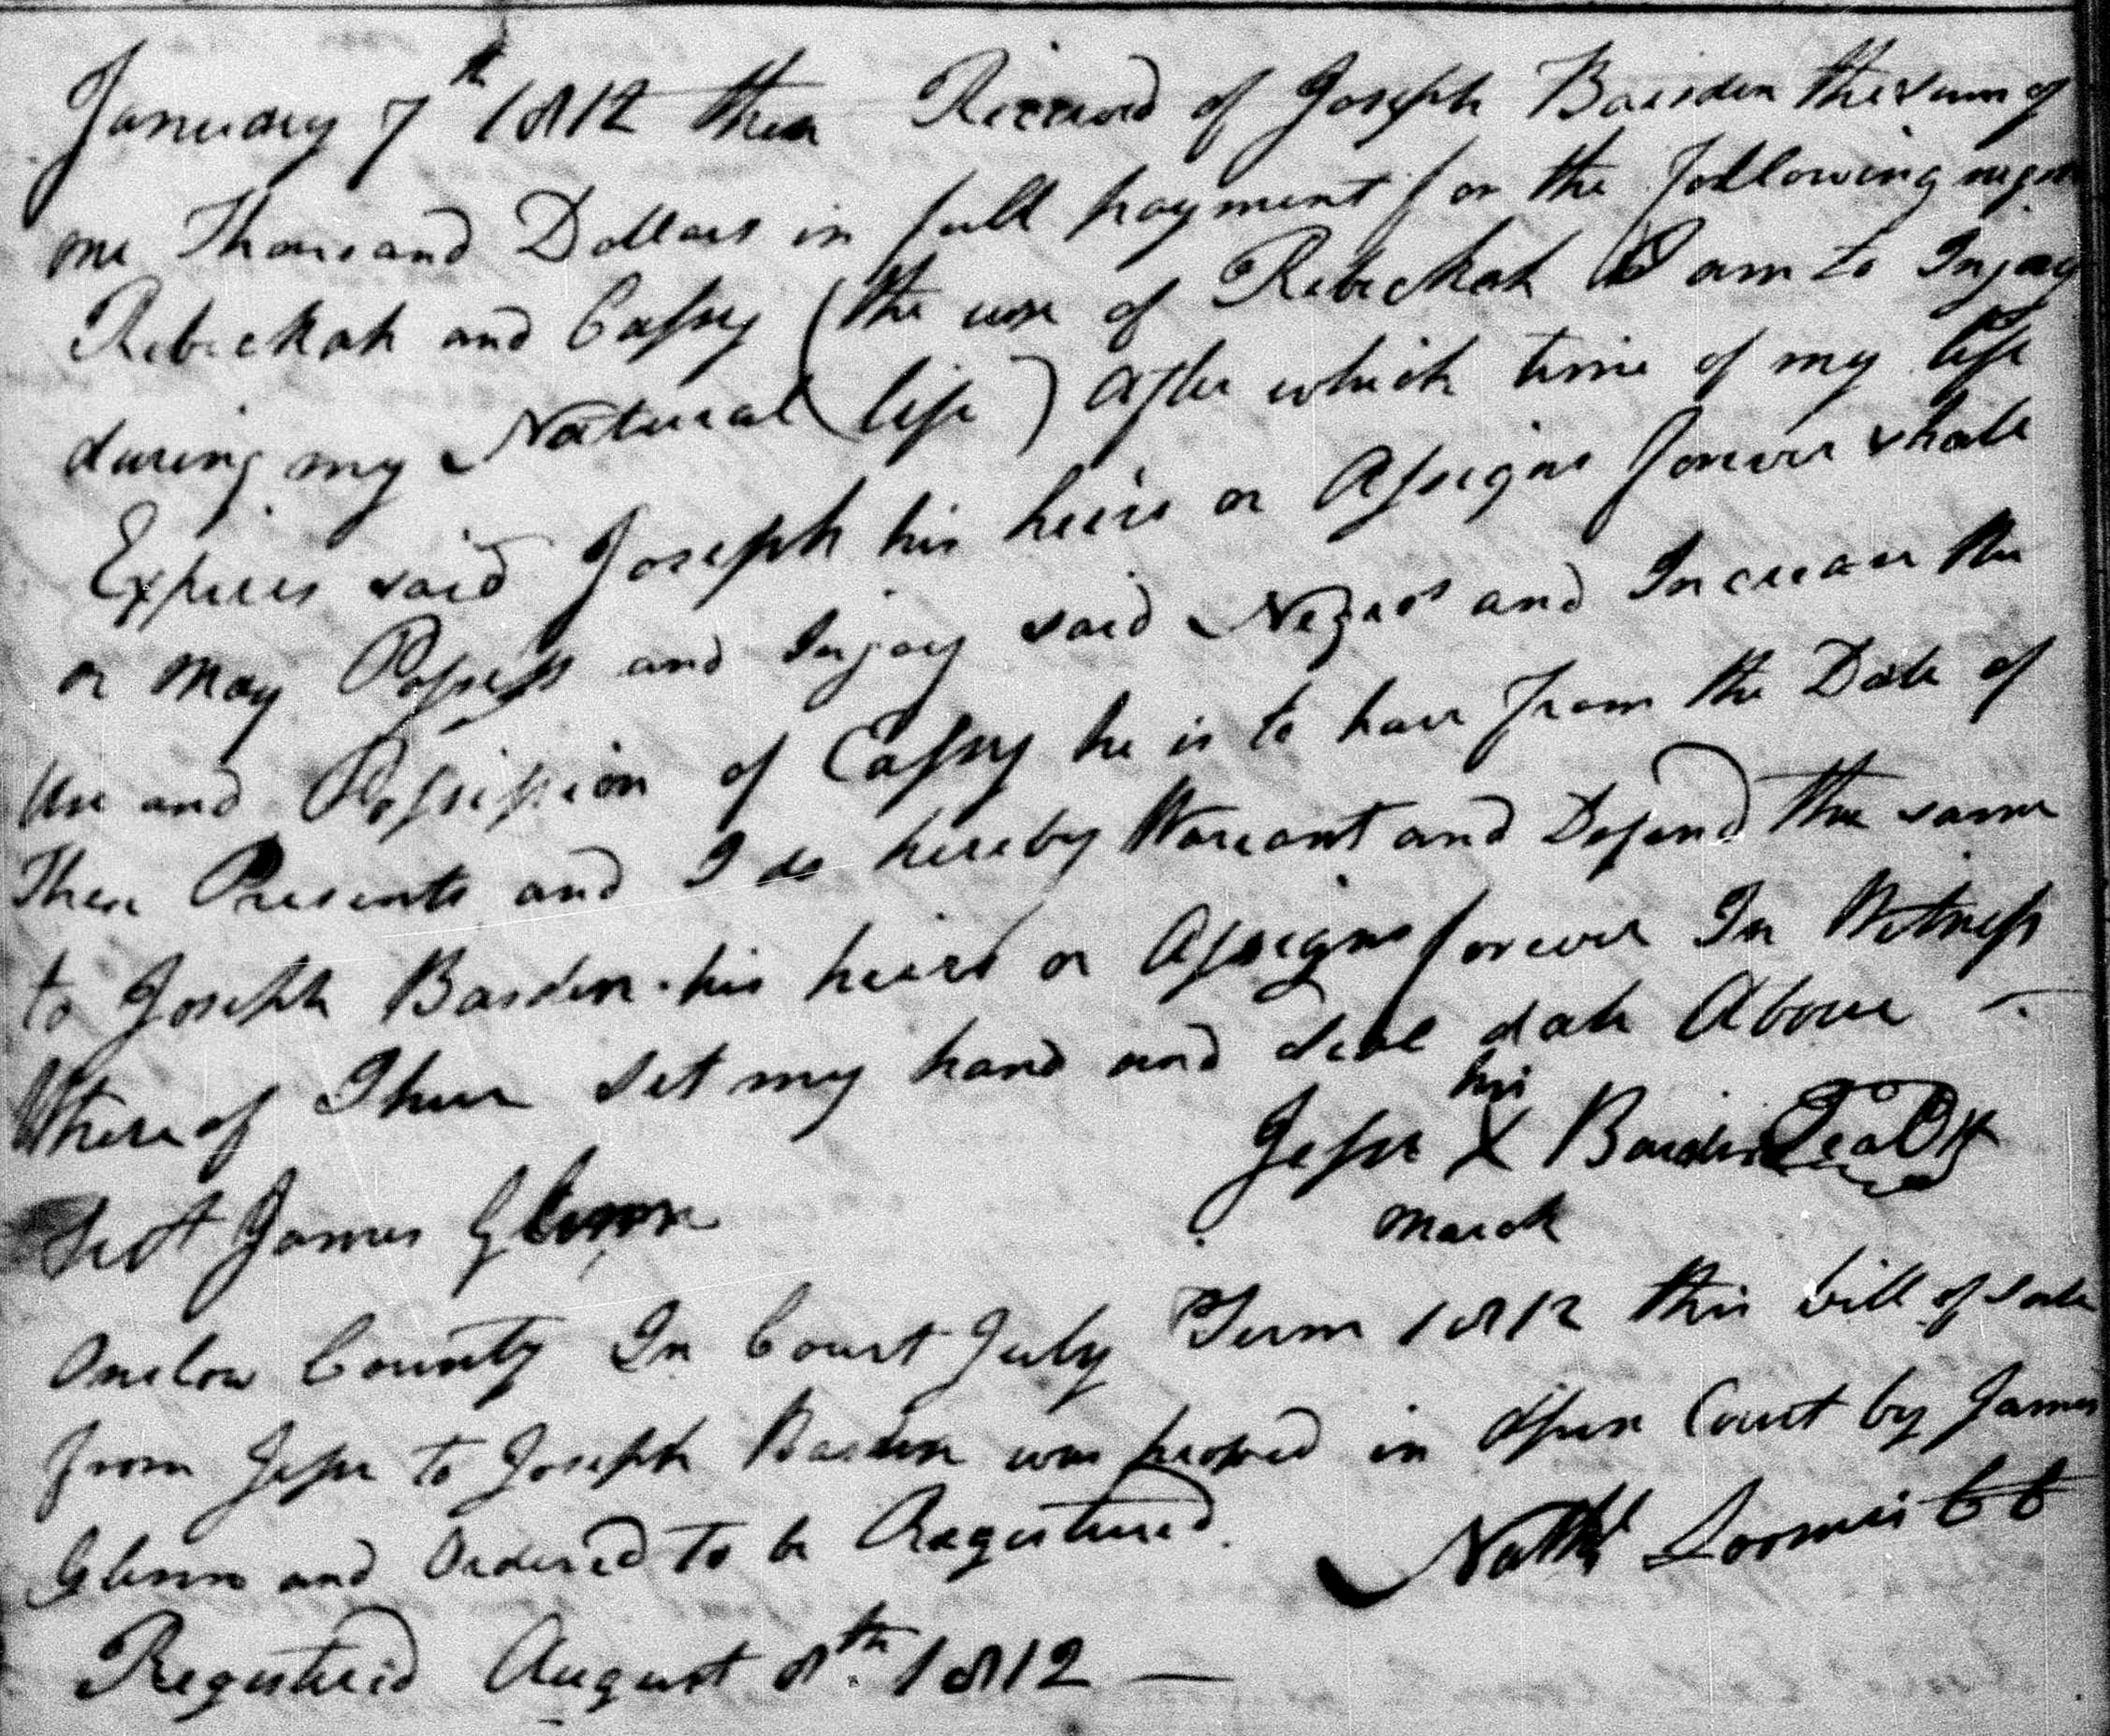 January 7th 1812 then Received of Joseph Basden the sum of
one Thousand Dollars in full payment for the following negros
Rebeckah and Cassy (the use of Rebeckah I am to Injoy
during my Natural life) after which time of my life
Expires said Joseph his heirs or Assigns forever shall
or may Possess and Injoy said Negros and Increase the
use and Possession of Cassy he is to have from the Date of
These Presents and I do hereby Warrant and Defend the same
to Joseph Basden his heirs or Assigns forever In Witness
Whereof I have set my hand and Seal date Above
his
Jesse X Basden Seal
mark
Test James Glenn
Onslow County In Court July Term 1812 this bill of sale
from Jesse to Joseph Basden was proved in Open Court by James
Glenn and Ordered to be Registered.
Nathl Loomis
Registered August 8th 1812